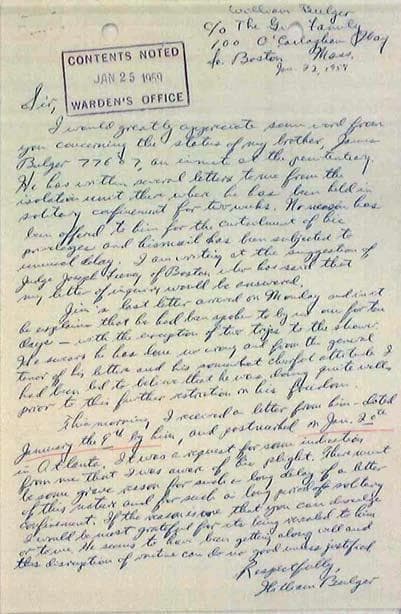 William Bulger
c/o The Family
100 O'Callaghan Way
So Boston Mass.
Jan. 23, 1959
CONTENTS NOTED
JAN 25 1959
WARDEN'S OFFICE
Sir,
I would greatly appreciate some word from
you concerning the status of my brother, James
Bulger 77607, an inmate at the penitentiary.
He has written several letters to me from the
isolation unit there where he has been held in
solitary confinement for two weeks. No reason has
been offered to him for the curtailment of his
privileges and his mail has been subjected to
unusual delay. I am writing at the suggestion of
Judge Joseph of Boston who has said that
my letter of inquiry would be answered.
Jim's last letter arrived on Monday and in it
he explains that he had been spoken to by no one for ten
days – with the exception of two trips to the shower.
He swears he has done no wrong and from the general
tenor of his letters and his somewhat cheerful attitude I
had been led to believe that he was doing quite well
prior to this further restriction on his freedom.
This morning I received a letter from him – dated
January the 9th by him, and postmarked on Jan. 20th
in Atlanta. It was a request for some indication
from me that I was aware of his plight. There must
be some grave reason for such a long delay of a letter
of this nature and for such a long period of solitary
confinement. If the reason is one that you can divulge
I would be most grateful for its being revealed to him
or to me. He seems to have been getting along well and
this disruption of routine can do no good unless justified
Respectfully,
William Bulger